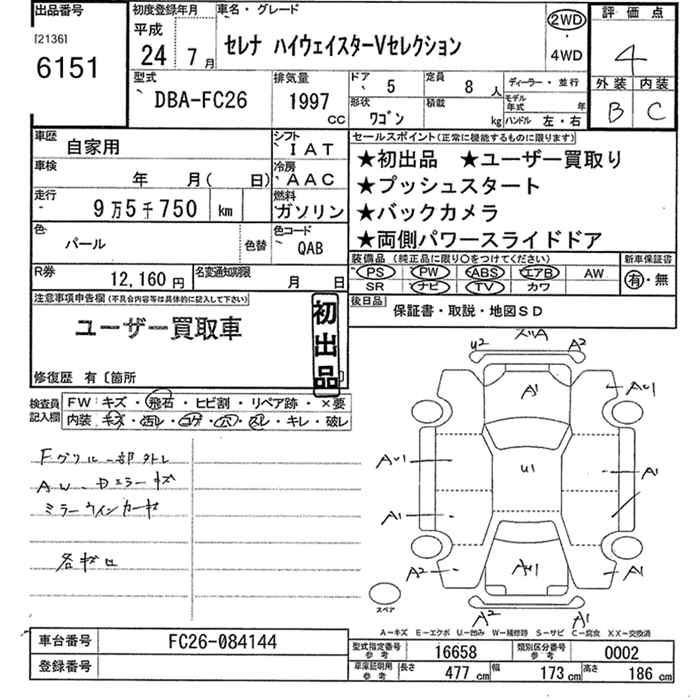 出品番号
[2136]
6151
初度登録年月
平成
24 7月
車名・グレード
セレナ ハイウェイスターVセレクション
2WD
・
4WD
評価点
4
外装 内装
B C
型式
DBA-FC26
排気量
1997
CC
ドア
5
定員
8 人
形状
ワゴン
積載
kg
ディーラー・並行
モデル
年式
年
ハンドル 左・右
車歴
自家用
シフト
IAT
車検
年 月( 日)
冷房
AAC
走行
9万5千750 km
燃料
ガソリン
色
パール
色替
色コード
QAB
R券
12,160円
名変通知期限
月 日
セールスポイント(正常に機能するものに限ります)
★初出品 ★ユーザー買取り
★プッシュスタート
★バックカメラ
★両側パワースライドドア
装備品 (純正品に限り○をつけてください)
PS PW ABS エアB AW
SR ナビ TV カワ
新車保証書
有・無
後日品
保証書・取説・地図SD
注意事項申告欄(不具合内容等は具体的に記入して下さい)
ユーザー買取車
初出品
修復歴 有〔箇所
検査員
記入欄
FW:キズ・飛石・ヒビ割・リペア跡・×要
内装・キズ・汚レ・コゲ・穴・スレ・キレ・破レ
Fグリル一部外レ
AW-Dミラーキズ
ミラーウインカーキズ
各キズ凹
U2
A2
A1
AU1
AU1
U1
A1
A1
A2
AU1
A1
A2
A1
スペア
A-キズ E-エクボ U-凹み W-補修跡 S-サビ C-腐食 XX-交換済
車台番号
FC26-084144
登録番号
型式指定番号
参考
16658
類別区分番号
参考
0002
車庫証明用
参考
長さ 477 cm 幅 173 cm 高さ 186 cm